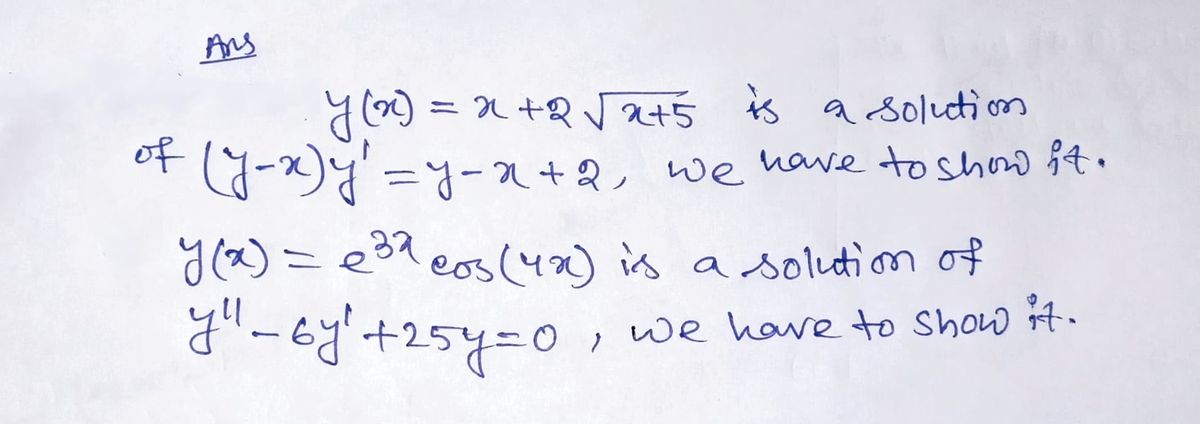 Ans
y(x) = x + 2 √x+5 is a solution
of (y-x)y' = y-x+2, we have to show it.
y(x) = e^3x cos(4x) is a solution of
y'' - 6y' + 25y = 0, we have to show it.